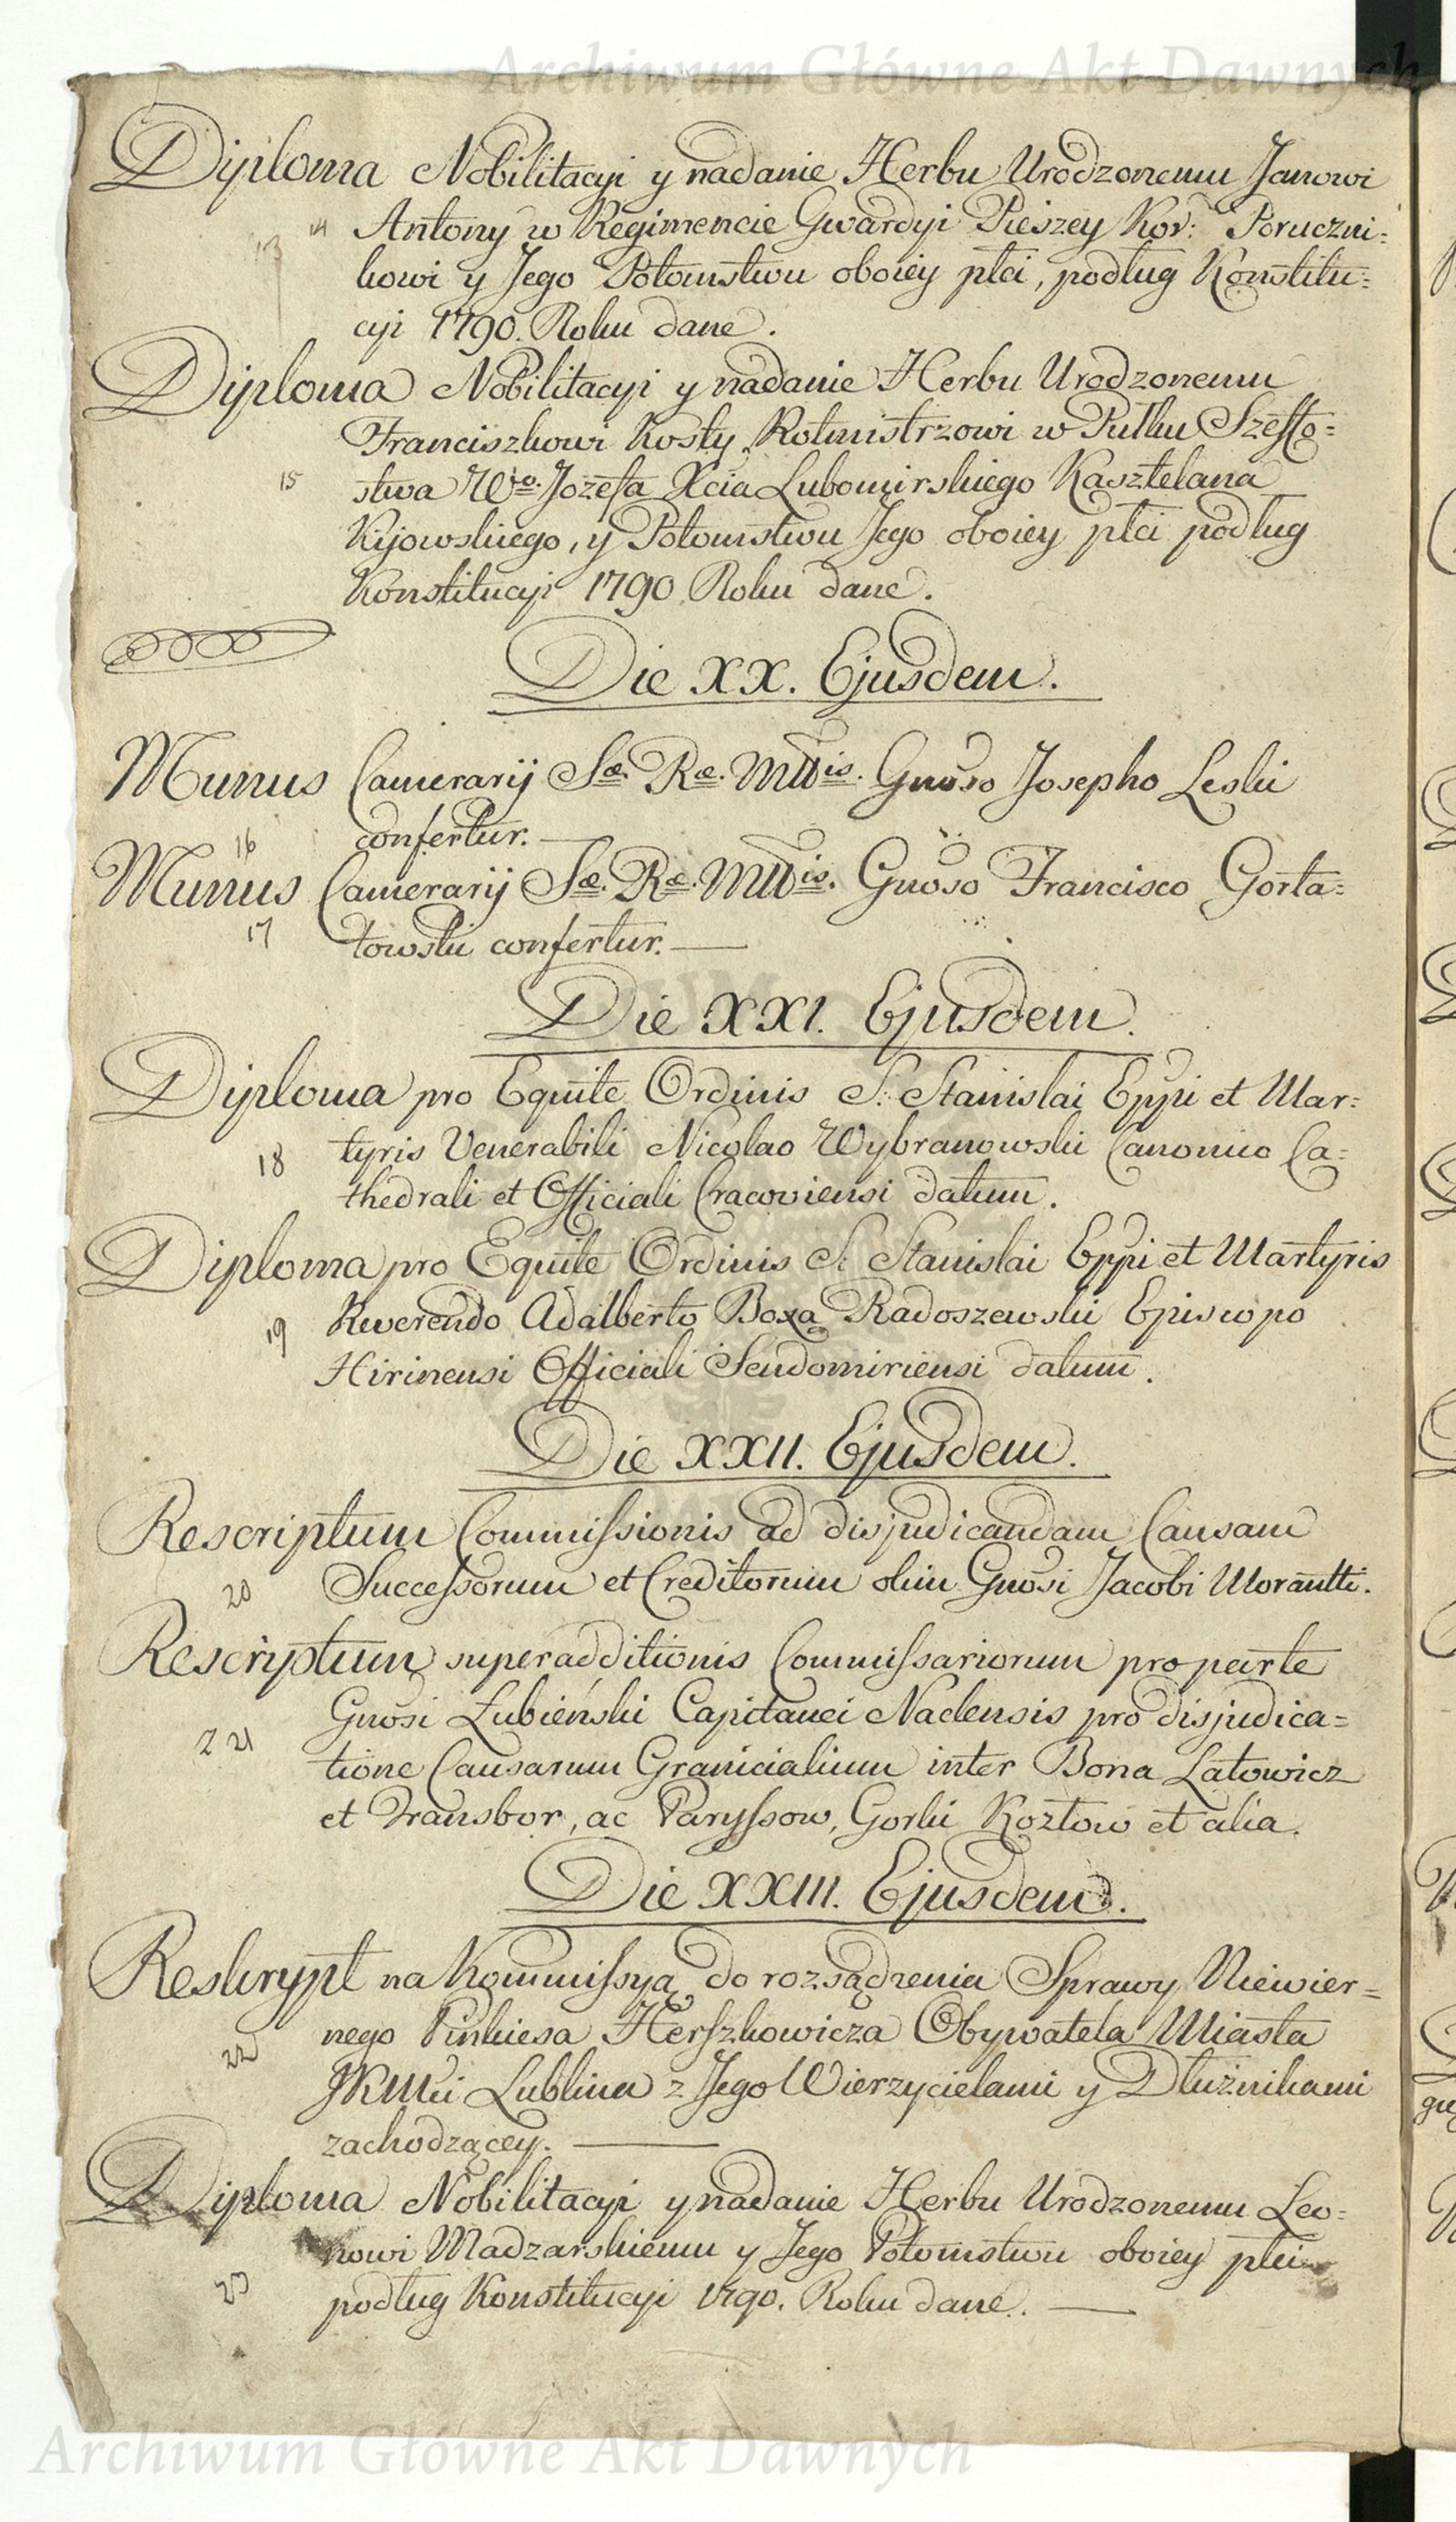 Archiwum Główne Akt Dawnych
Diploma Nobilitacyi y nadanie Herbu Urodzonemu Janowi
13 14 Antony w Regimencie Gwardyi Pieszey Kor: Poruczni=
kowi y Jego Potomstwu oboiey płci, podług Konstitu=
cyi 1790. Roku dane.
Diploma Nobilitacyi y nadanie Herbu Urodzonemu
Franciszkowi Kosty Rotmistrzowi w Pułku Szefſo=
15 stwa Wgo. Jozefa Xcia Lubomirskiego Kasztelana
Kijowskiego, y Potomstwu Jego oboiey płci podług
Konstitucyi 1790 Roku dane.
Die XX. Ejusdem.
Munus Camerarij Sæ. Ræ. Mttis. Gnoso Josepho Leski
16 confertur.
Munus Camerarij Sæ. Ræ. Mttis. Gnoso Francisco Gorta=
17 towski confertur.
Die XXI. Ejusdem.
Diploma pro Equite Ordinis S. Stanislai Eppi et Mar=
18 tyris Venerabili Nicolao Wybranowski Canonico Ca=
thedrali et Officiali Cracoviensi datum.
Diploma pro Equite Ordinis S. Stanislai Eppi et Martyris
19 Reverendo Adalberto Boxa Radoszewski Episcopo
Hirinensi Officiali Sendomiriensi datum.
Die XXII. Ejusdem.
Rescriptum Commiſsionis ad disjudicandam Causam
20 Succeſsorum et Creditorum olim Gnosi Jacobi Morautti.
Rescriptum superadditionis Commiſsariorum pro parte
Gnosi Łubieński Capitanei Naclensis pro disjudica=
2 21 tione Causarum Granicialium inter Bona Latowicz
et Transbor, ac Paryſsow, Gorki Kozłow et alia.
Die XXIII. Ejusdem.
Reskrypt na Kommiſsyą do rozsądzenia Sprawy Niewier=
22 nego Pinkiesa Herſzkowicza Obywatela Miasta
JKMci Lublina z Jego Wierzycielami y Dłużnikami
zachodzącey.
Diploma Nobilitacyi y nadanie Herbu Urodzonemu Leo=
nowi Madzarskiemu y Jego Potomstwu oboiey płci
23 podług Konstitucyi 1790. Roku dane.
Archiwum Główne Akt Dawnych